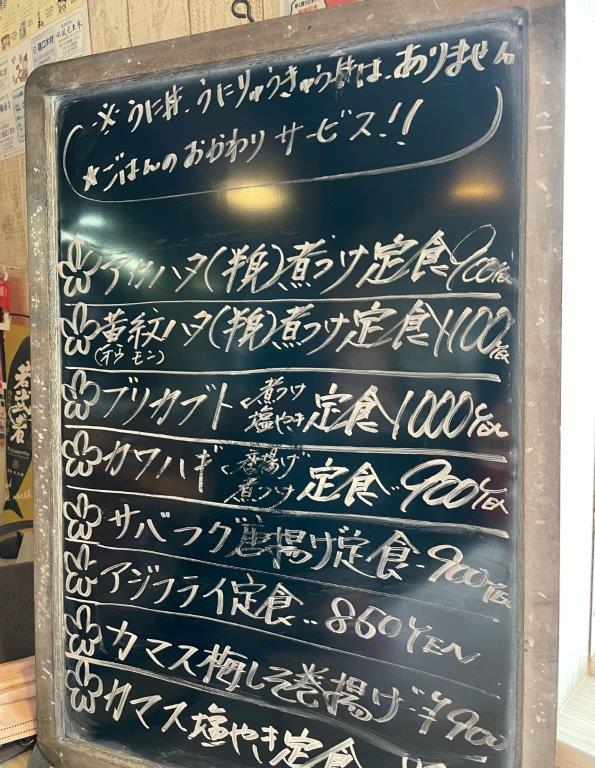 ※うに丼、うにりゅうきゅう丼は、ありません
★ごはんのおかわりサービス!!
アカハタ(半身)煮つけ定食900YEN
黄紋ハタ(半身)煮つけ定食1100YEN
(オウモン)
ブリカブト 煮つけ 塩やき 定食1000YEN
カワハギ 唐揚げ 煮つけ 定食900YEN
サバフグ唐揚げ定食900YEN
アジフライ定食860YEN
カマス梅しそ巻揚げ¥900
カマス塩やき定食